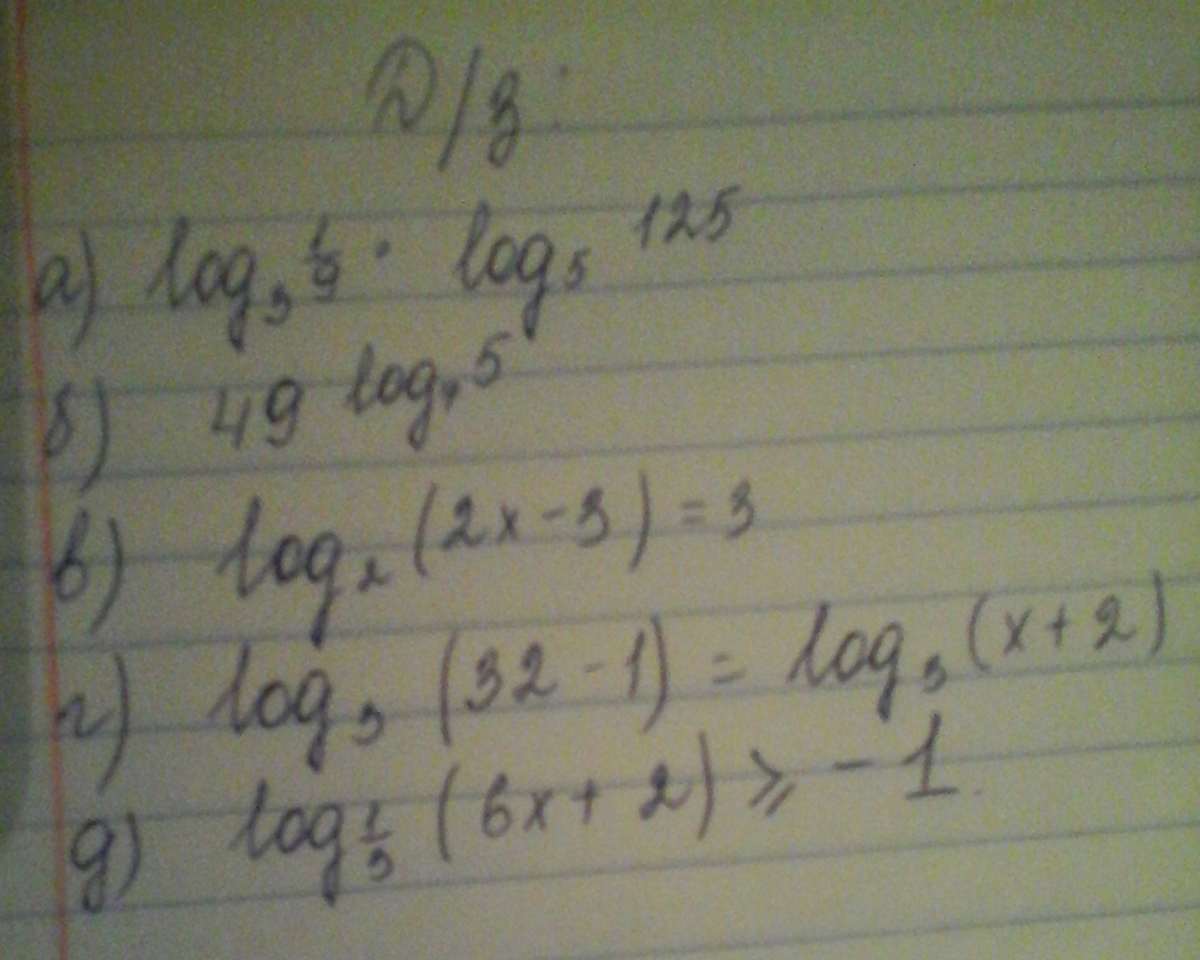 Д/з:
а) log₃ 1/9 · log₅ 125
б) 49 log₇ 5
в) log₂ (2x - 3) = 3
г) log₃ (32 - 1) = log₃ (x + 2)
д) log 1/3 (6x + 2) ⩾ -1.